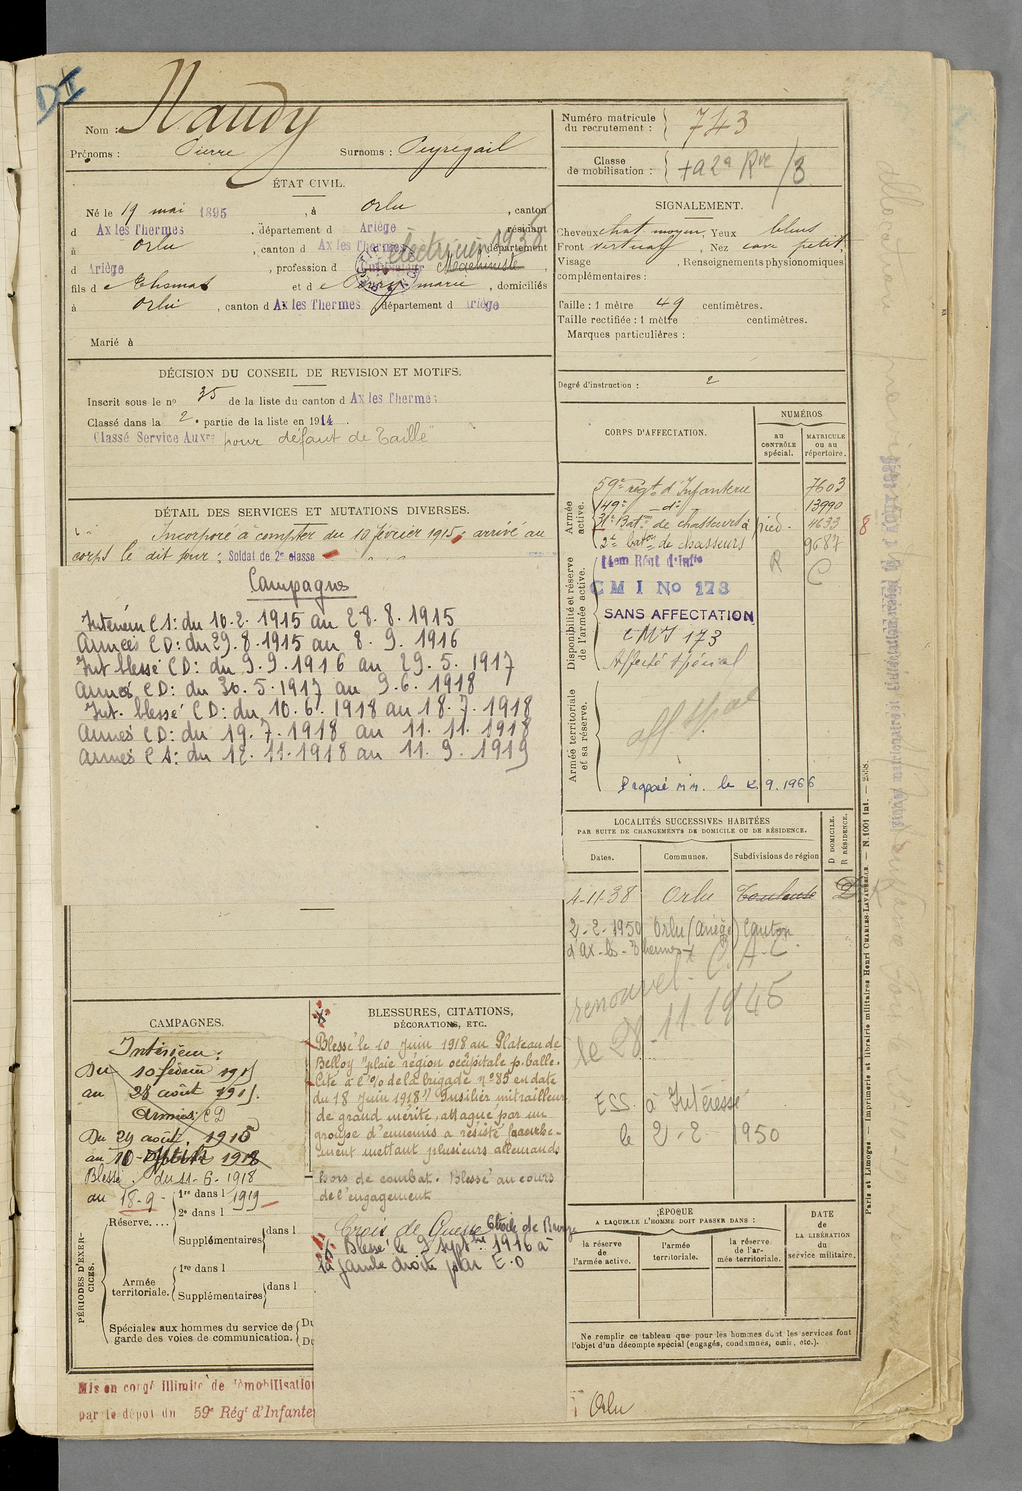 D II
Nom : Naudy
Prénoms : Pierre Surnoms : Peyregail
ÉTAT CIVIL.
Né le 19 mai 1895, à Orlu, canton
d Ax les Thermes, département d Ariège, résidant
à Orlu, canton d Ax les Thermes, département
d Ariège, profession d Cultivateur Machiniste
électricien 1938
fils de Thomas et de marie, domiciliés
à Orlu, canton d Ax les Thermes département d Ariège
Marié à
DÉCISION DU CONSEIL DE REVISION ET MOTIFS.
Inscrit sous le no 35 de la liste du canton d Ax les Thermes
Classé dans la 2e partie de la liste en 1914.
Classé Service Auxre pour défaut de Taille
DÉTAIL DES SERVICES ET MUTATIONS DIVERSES.
Incorporé à compter du 10 février 1915, arrivé au
corps le dit jour ; Soldat de 2e classe
Campagnes
Interieur CS: du 10.2.1915 au 28.8.1915
Armées CD: du 29.8.1915 au 8.9.1916
Int blessé CD: du 9.9.1916 au 29.5.1917
Armée CD: du 30.5.1917 au 9.6.1918
Int. blessé CD: du 10.6.1918 au 18.7.1918
Armée CD: du 19.7.1918 au 11.11.1918
Armée CS: du 12.11.1918 au 11.9.1919
CAMPAGNES.
Intérieur:
Du 10 février 1915
au 28 août 1915.
Armées CD
Du 29 août 1915
au 10 1918
Blessé. du 11-6-1918
au 18-9- 1919
PÉRIODES D'EXERCICES.
Réserve.... 1re dans l
2e dans l
Supplémentaires dans l
Armée territoriale. 1re dans l
Supplémentaires dans l
Spéciales aux hommes du service de
garde des voies de communication. Du
Du
Mis en congé illimité de démobilisation
par le dépôt du 59e Régt d'Infanterie
BLESSURES, CITATIONS,
DÉCORATIONS, ETC.
Blessé le 10 Juin 1918 au Plateau de
Belloy "plaie région occipitale p. balle.
Cité à l'O/ de la brigade no 85 en date
du 18 Juin 1918 "Fusilier mitrailleur
de grand mérite, attaqué par un
groupe d'ennemis a résisté
mettant plusieurs allemands
hors de combat. Blessé au cours
de l'engagement
Croix de Guerre Etoile de Bronze
Blessé le 9 septbre 1916 à
la jambe droite par E.O
Numéro matricule
du recrutement : 743
Classe
de mobilisation : /3
SIGNALEMENT.
Cheveux chat moyen, Yeux bleus
Front vertical, Nez cave petit,
Visage , Renseignements physionomiques
complémentaires :
Taille : 1 mètre 49 centimètres.
Taille rectifiée : 1 mètre centimètres.
Marques particulières :
Degré d'instruction : 2
CORPS D'AFFECTATION.
NUMÉROS
au CONTRÔLE spécial.
MATRICULE ou au répertoire.
Armée active.
59e régt d'Infanterie 7603
149e — do 13990
31e Batn de chasseurs à pied. 4633 8
2e baton de chasseurs 9687
Disponibilité et réserve de l'armée active.
14em Régt d'Infie R C
C M I No 173
SANS AFFECTATION
CMI 173
Affecté spécial
Armée territoriale et sa réserve.
aff spécial
Proposé M.M. le 2.9.1966
LOCALITÉS SUCCESSIVES HABITÉES
PAR SUITE DE CHANGEMENTS DE DOMICILE OU DE RÉSIDENCE.
Dates. Communes. Subdivisions de région D DOMICILE. R RÉSIDENCE.
4-11-38 Orlu Toulouse D
2-2-1950 Orlu (Ariège) Canton
d'Ax-les-Thermes
renouvel. C. A-C.
le 28-11-1945
ESS. à Intéressé
le 2-2 1950
ÉPOQUE
A LAQUELLE L'HOMME DOIT PASSER DANS :
la réserve de l'armée active.
l'armée territoriale.
la réserve de l'armée territoriale.
DATE
de
LA LIBÉRATION
du
service militaire.
Ne remplir ce tableau que pour les hommes dont les services font
l'objet d'un décompte spécial (engagés, condamnés, omis, etc.).
Orlu
Paris et Limoges. — Imprimerie et librairie militaires Henri CHARLES-LAVAUZELLE. — N. 1001 int. — 2558.